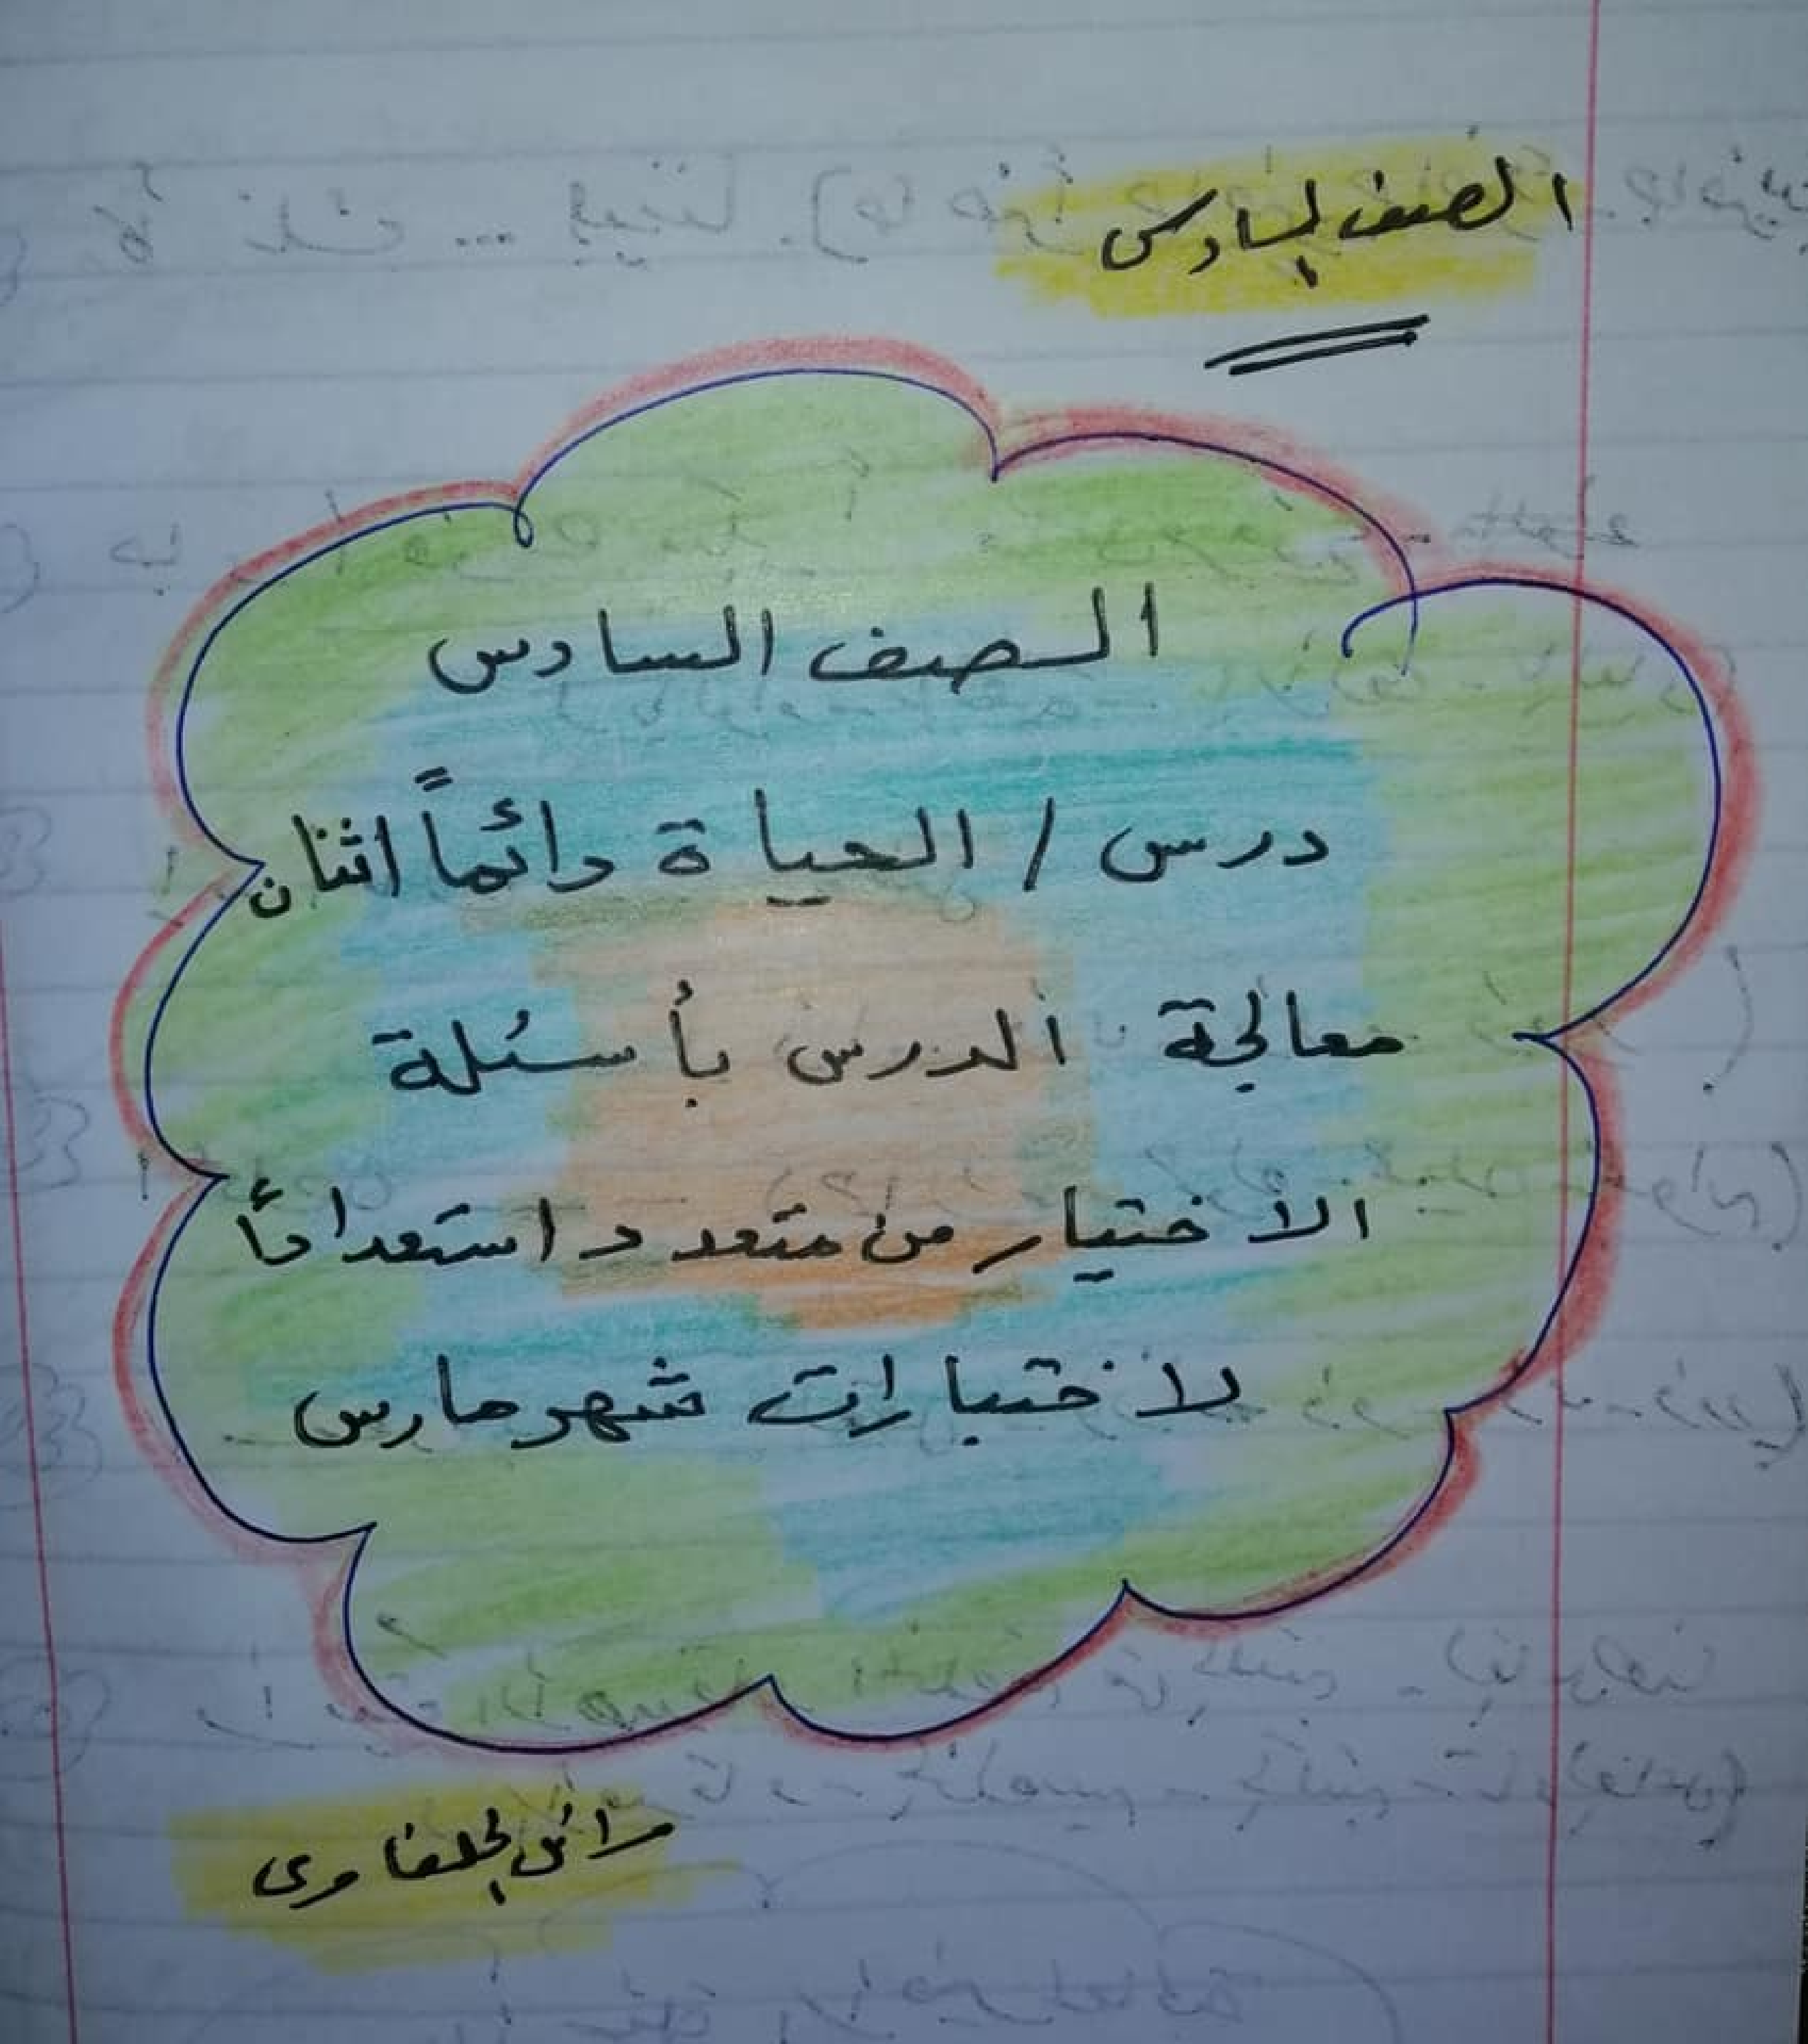 الصف السادس
الصف السادس
درس / الحياة دائماً اثنان
معالجة الدرس بأسئلة
الاختيار من متعدد استعدادًا
لاختبارات شهر مارس